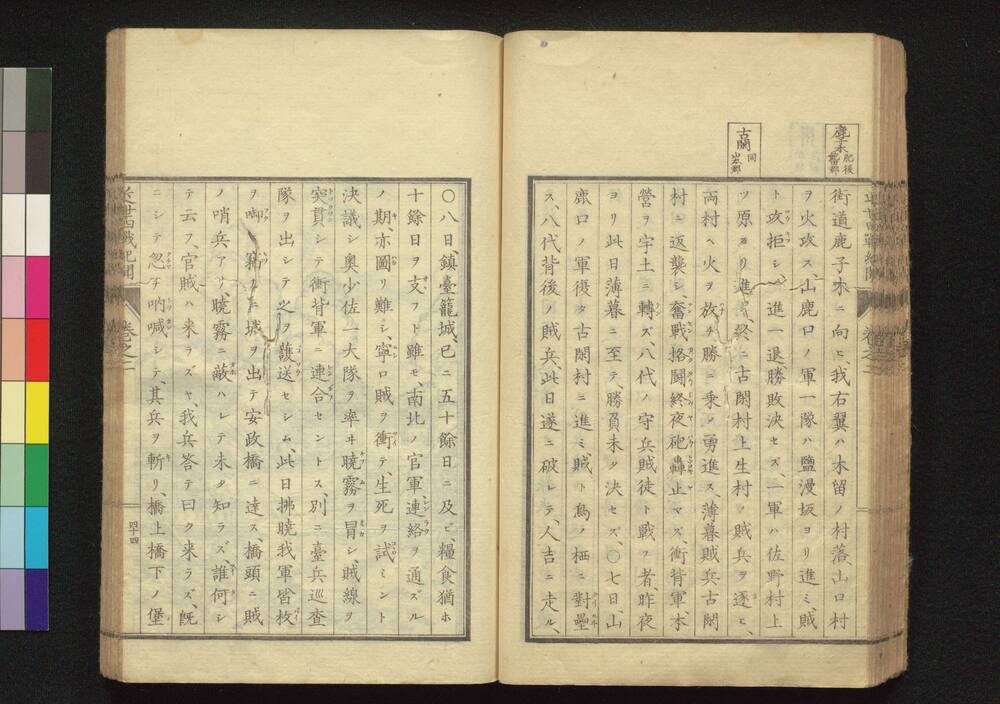 鹿子木 肥後飽田郡
古閑 同山本郡
街道鹿子木ニ向ヒ、我右翼ハ木留ノ村落、山口村
ヲ火攻ス、山鹿口ノ軍一隊ハ鹽漫坂ヨリ進ミ、賊
ト攻拒シ、一進一退、勝敗決セズ、一軍ハ佐野村上
ツ原ヨリ進ミ、終ニ古閑村上生村ノ賊兵ヲ逐ヒ、
両村ヘ火ヲ放チ勝ニ乗メ勇進ス、薄暮賊兵古閑
村ニ返襲シ奮戰挌闘終夜砲轟止マズ、衝背軍、本
營ヲ宇土ニ轉ズ、八代ノ守兵賊徒ト戰フ者昨夜
ヨリ此日薄暮ニ至テ、勝負未タ決セズ、〇七日、山
鹿口ノ軍復タ古閑村ニ進ミ、賊ト鳥ノ栖ニ對壘
ス、八代背後ノ賊兵、此日遂ニ破レテ、人吉ニ走ル、
〇八日、鎮臺籠城、已ニ五十餘日ニ及ビ、糧食猶ホ
十餘日ヲ支フト雖モ、南北ノ官軍、連絡ヲ通ズル
ノ期、亦圖リ難シ、寧ロ賊ヲ衝テ、生死ヲ試ミント
決議シ奥少佐一大隊ヲ率ヰ曉霧ヲ冒シ、賊線ヲ
突貫シテ衝背軍ニ連合セントス、別ニ臺兵巡査
隊ヲ出シテ之ヲ護送セシム、此日拂曉我軍皆枚
ヲ啣ミ竊カニ城ヲ出テ安政橋ニ達ス、橋頭ニ賊
ノ哨兵アリ、曉霧ニ蔽ハレテ未タ知ラズ、誰何シ
テ云フ、官賊ハ来ラズヤ、我兵答テ曰ク来ラズ、既
ニシテ忽チ吶喊シテ、其兵ヲ斬リ、橋上橋下ノ堡
近世四戰紀聞
卷之二
四十四